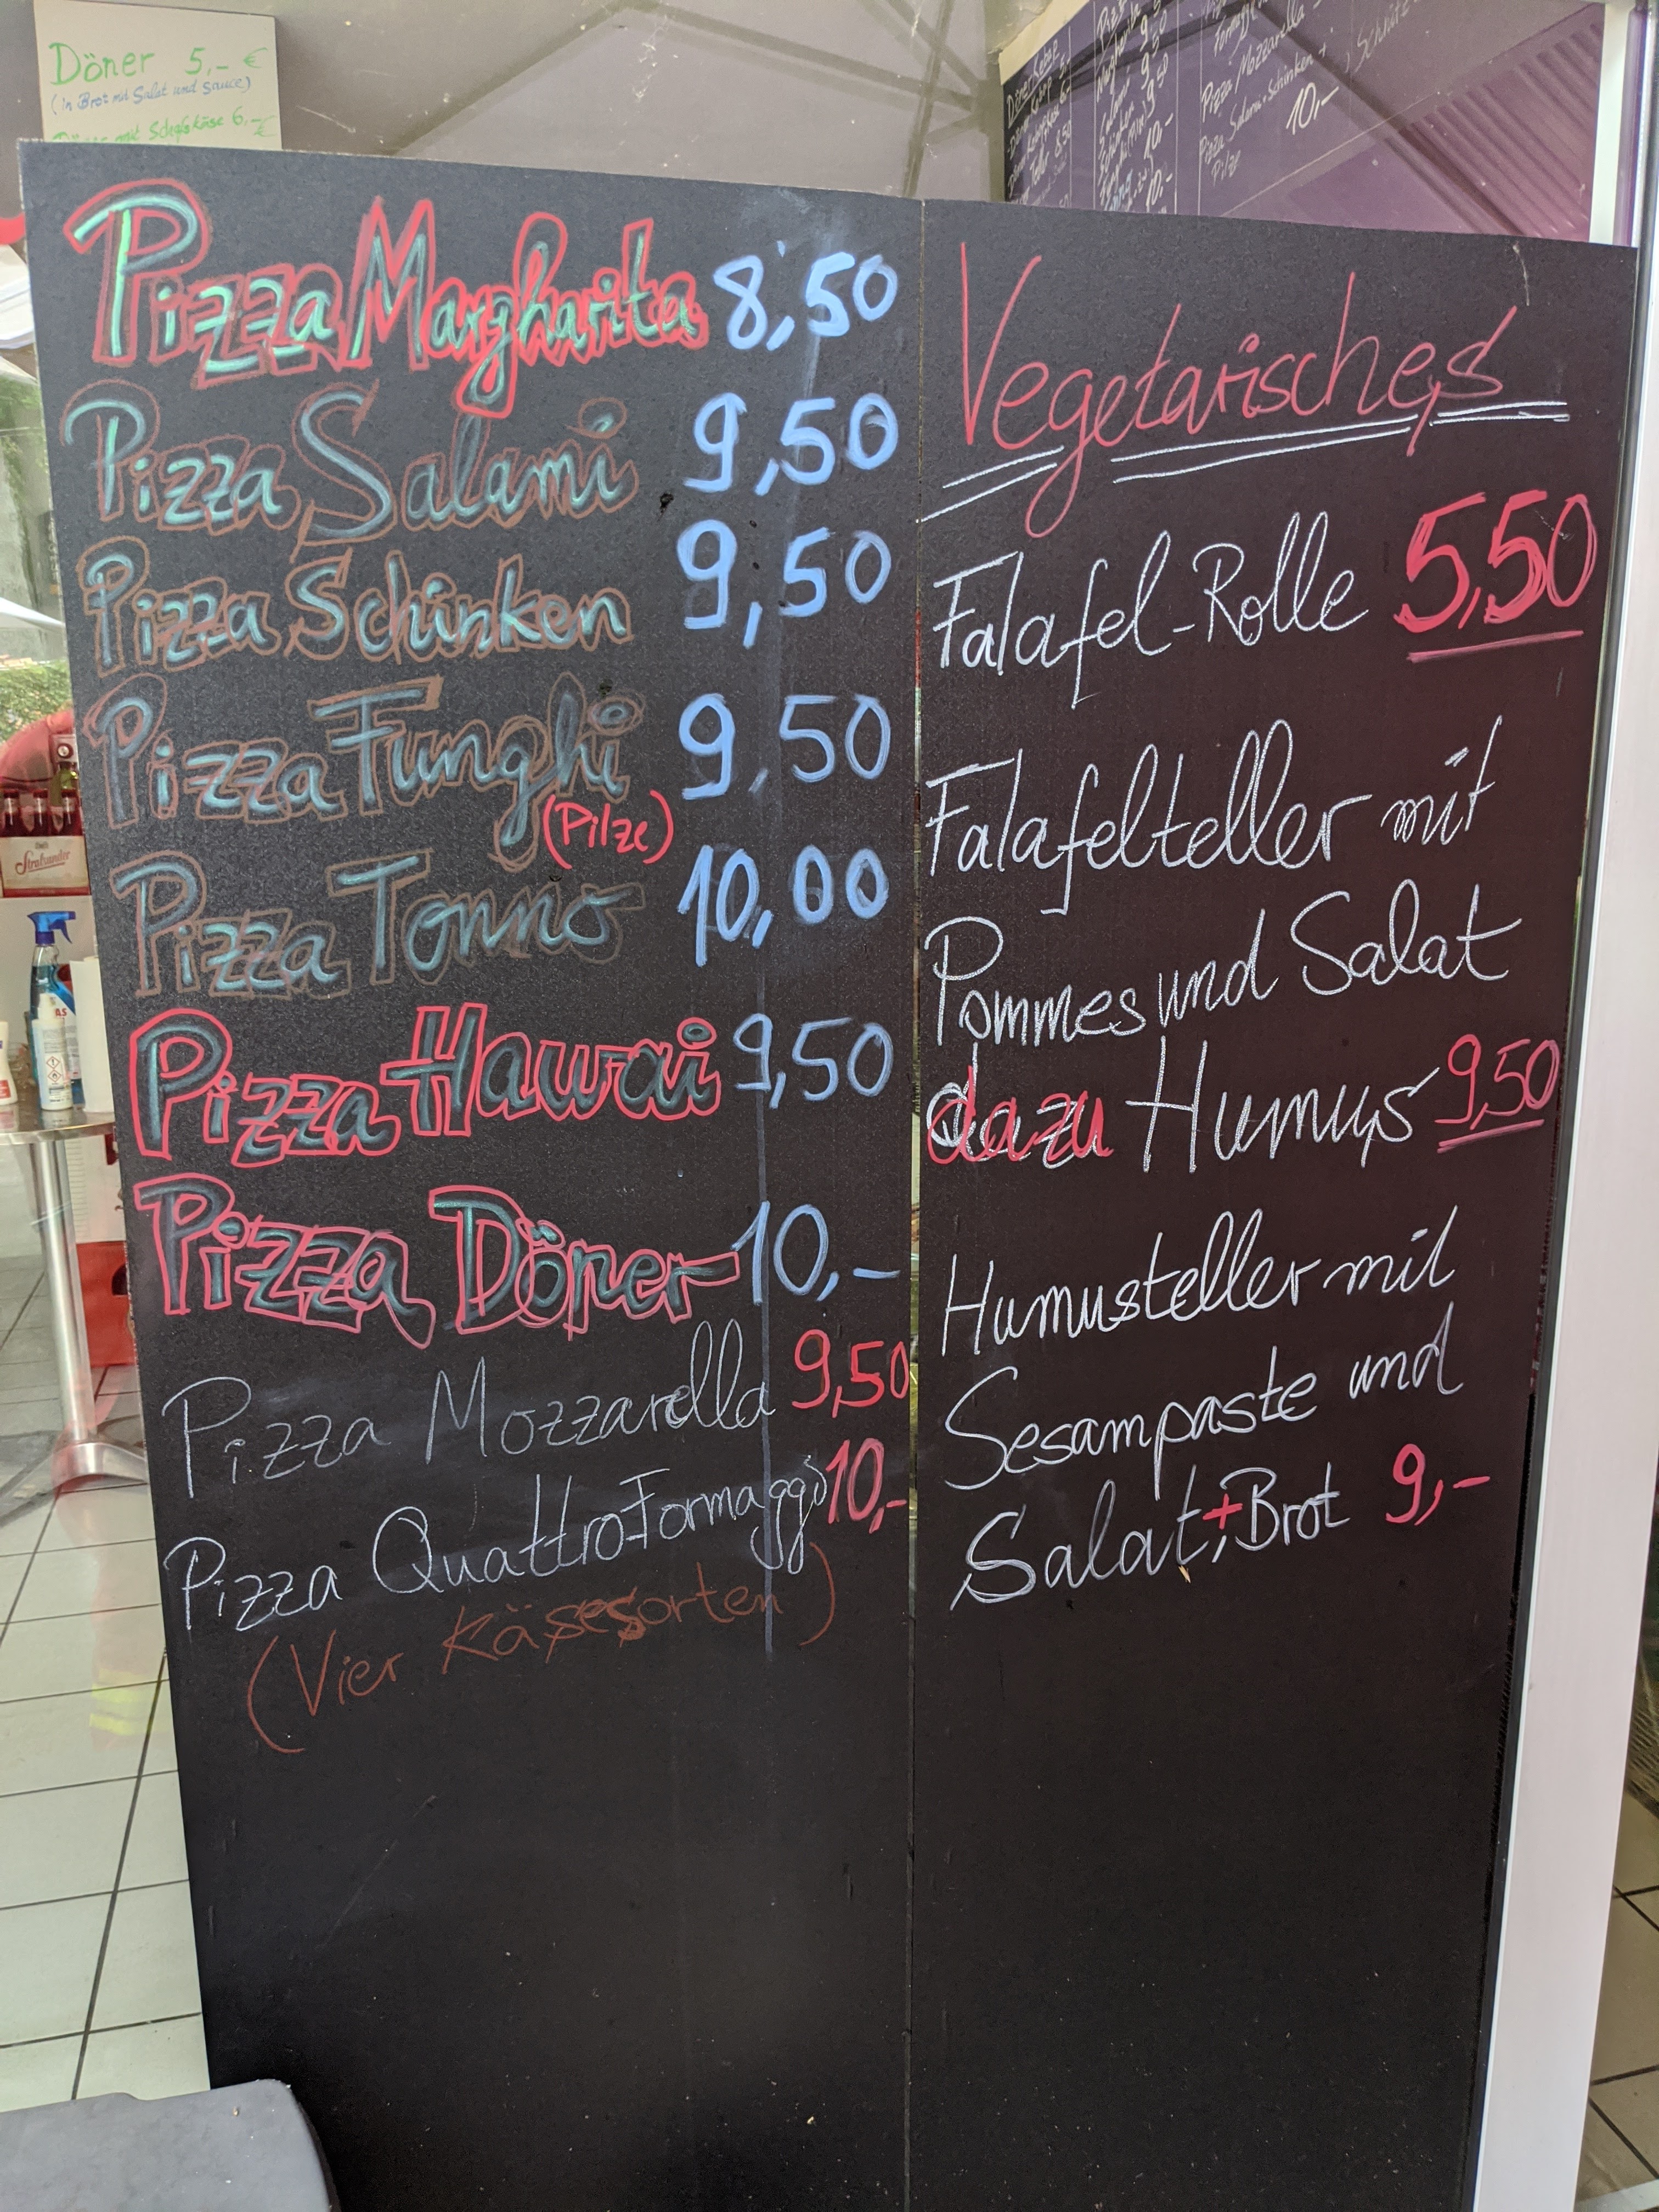 Döner 5,- €
(in Brot mit Salat und Sauce)
mit Schafskäse 6,- €
Pizza Margharita 8,50
Pizza Salami 9,50
Pizza Schinken 9,50
Pizza Funghi 9,50
(Pilze)
Pizza Tonno 10,00
Pizza Hawai 9,50
Pizza Döner 10,-
Pizza Mozzarella 9,50
Pizza Quattro Formaggi 10,-
(Vier Käsesorten)
Vegetarisches
Falafel-Rolle 5,50
Falafelteller mit
Pommes und Salat
dazu Humus 9,50
Humusteller mit
Sesampaste und
Salat,+Brot 9,-
Pizza Mozzarella
Pizza Salami + Schinken +
Pilze 10,-
Stralsunder